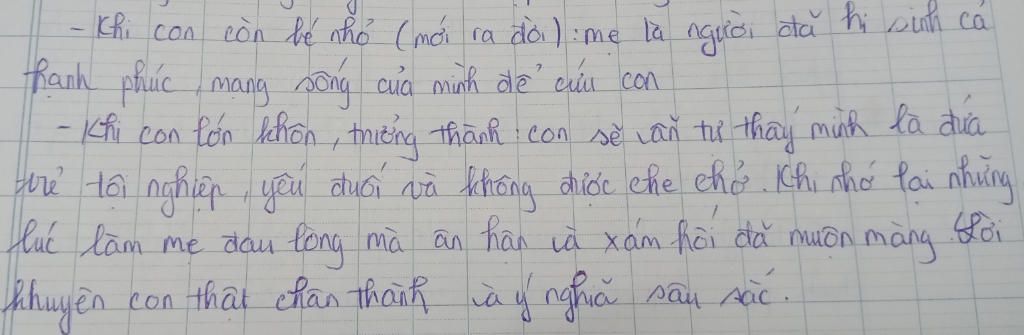 - Khi con còn bé nhỏ (mới ra đời): mẹ là người đã hi sinh cả
hạnh phúc, mạng sống của mình để cứu con
- Khi con lớn khôn, trưởng thành con sẽ vẫn tự thấy mình là đứa
trẻ tội nghiệp, yếu đuối và không được che chở. Khi nhớ lại những
lúc làm mẹ đau lòng mà ân hận và xám hối đã muộn màng. Lời
khuyên con thật chân thành và ý nghĩa sâu sắc.